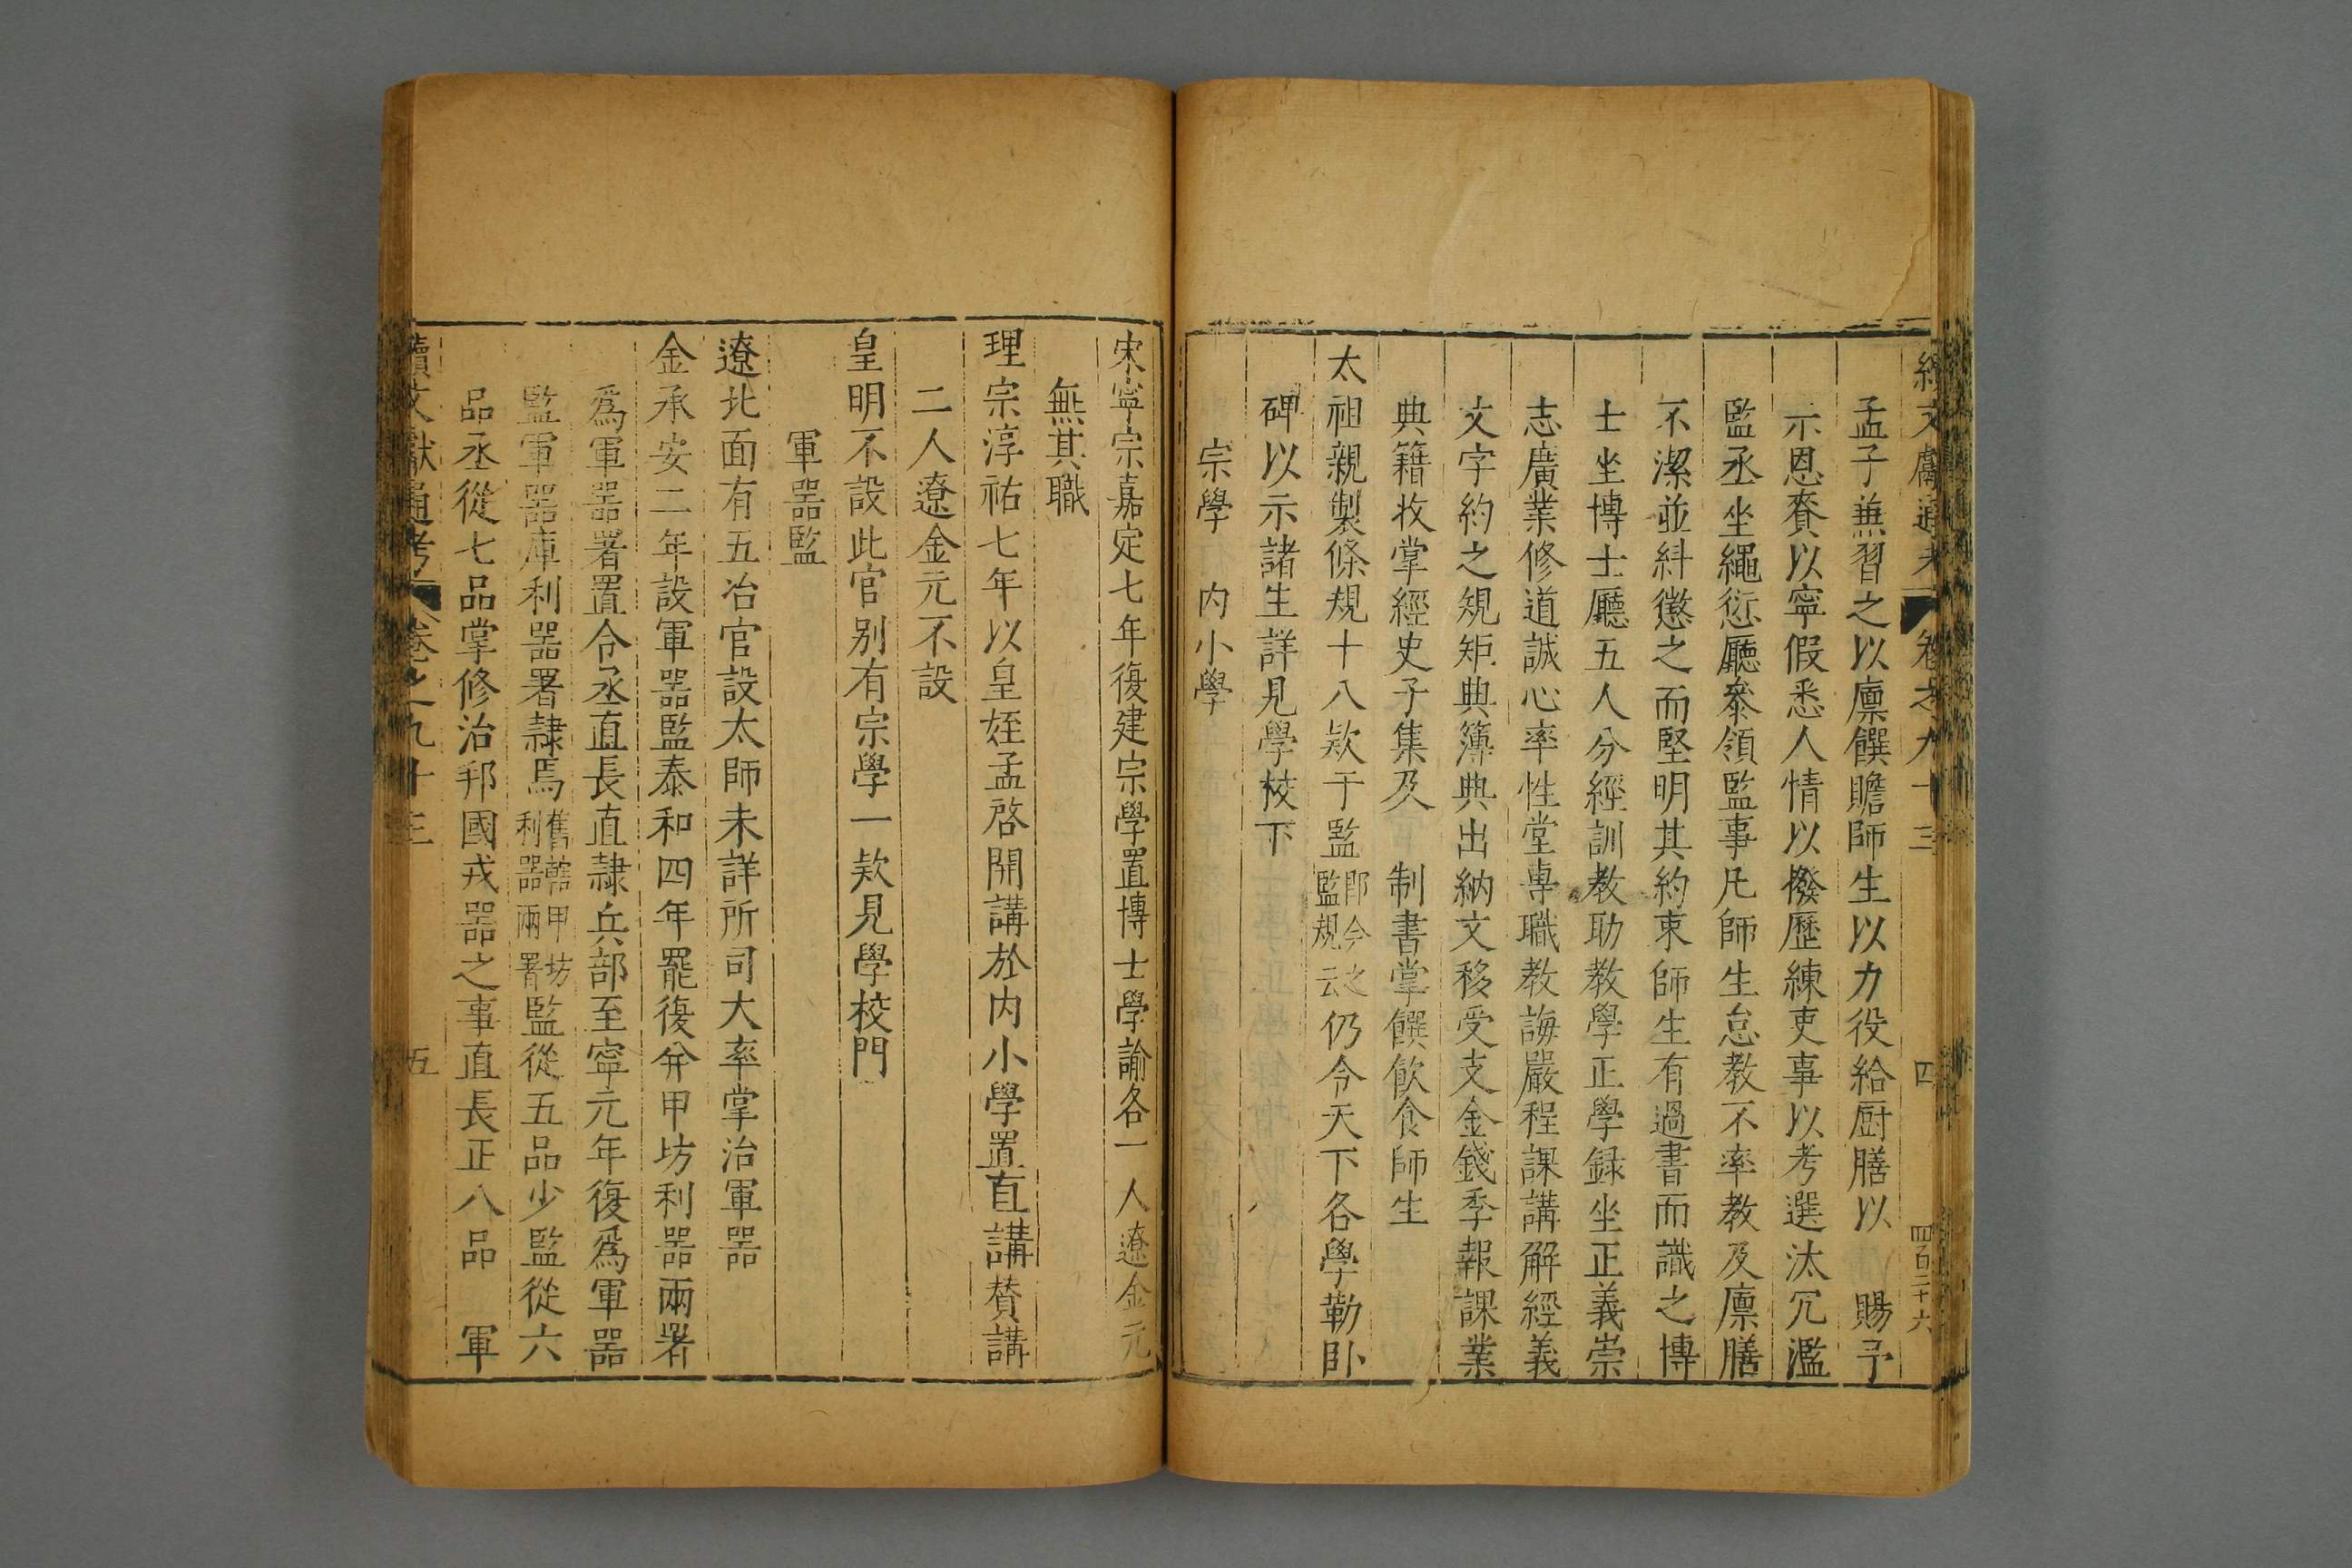 續文獻通考 卷之九十三 四 四百二十六
孟子兼習之以廩饌贍師生以力役給厨膳以 賜予
示恩賚以寧假悉人情以撥歷練吏事以考選汰冗濫
監丞坐繩愆廳叅領監事凡師生怠教不率教及廩膳
不潔並糾懲之而堅明其約束師生有過書而識之博
士坐博士廳五人分經訓教助教學正學録坐正義崇
志廣業修道誠心率性堂專職教誨嚴程課講解經義
文字約之規矩典簿典出納文移受支金錢季報課業
典籍收掌經史子集及 制書掌饌飲食師生
太祖親製條規十八欵于監即今之監規云仍令天下各學勒卧
碑以示諸生詳見學校下
宗學 内小學
宋寧宗嘉定七年復建宗學置博士學諭各一人遼金元
無其職
理宗淳祐七年以皇姪孟啓開講於内小學置直講賛講
二人遼金元不設
皇明不設此官别有宗學一欵見學校門
軍器監
遼北面有五冶官設太師未詳所司大率掌治軍器
金承安二年設軍器監泰和四年罷復并甲坊利器兩署
爲軍器署置令丞直長直隷兵部至寧元年復爲軍器
監軍器庫利器署隷焉舊轄甲坊利器兩署監從五品少監從六
品丞從七品掌修治邦國戎器之事直長正八品 軍
續文獻通考 卷之九十三 五